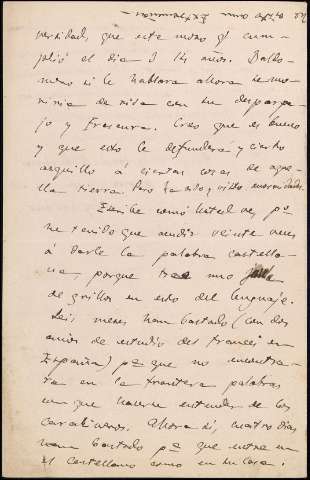 versidad, que este mozo q. cum-
plió el dia 3 14 años. Baldo-
mero si le hablara ahora se mo-
riria de risa con su desparpa-
jo y frescura. Creo que es bueno
y que esto le defenderá y cierto
orgullo á ciertas cosas de aque-
lla tierra. Pero ha oido y visto
Escribe como usted ve, pº
he tenido que veinte veces
á darle la palabra castella-
na, porque trae una jaula
de grillos en esto del lenguaje.
Seis meses han bastado (con dos
años de estudio del frances en
España) pª que no encontra-
ra en la frontera palabras
con que hacerse entender de los
carabineros. Ahora si, cuatro dias
han bastado pª que entre en
el castellano como en su casa.